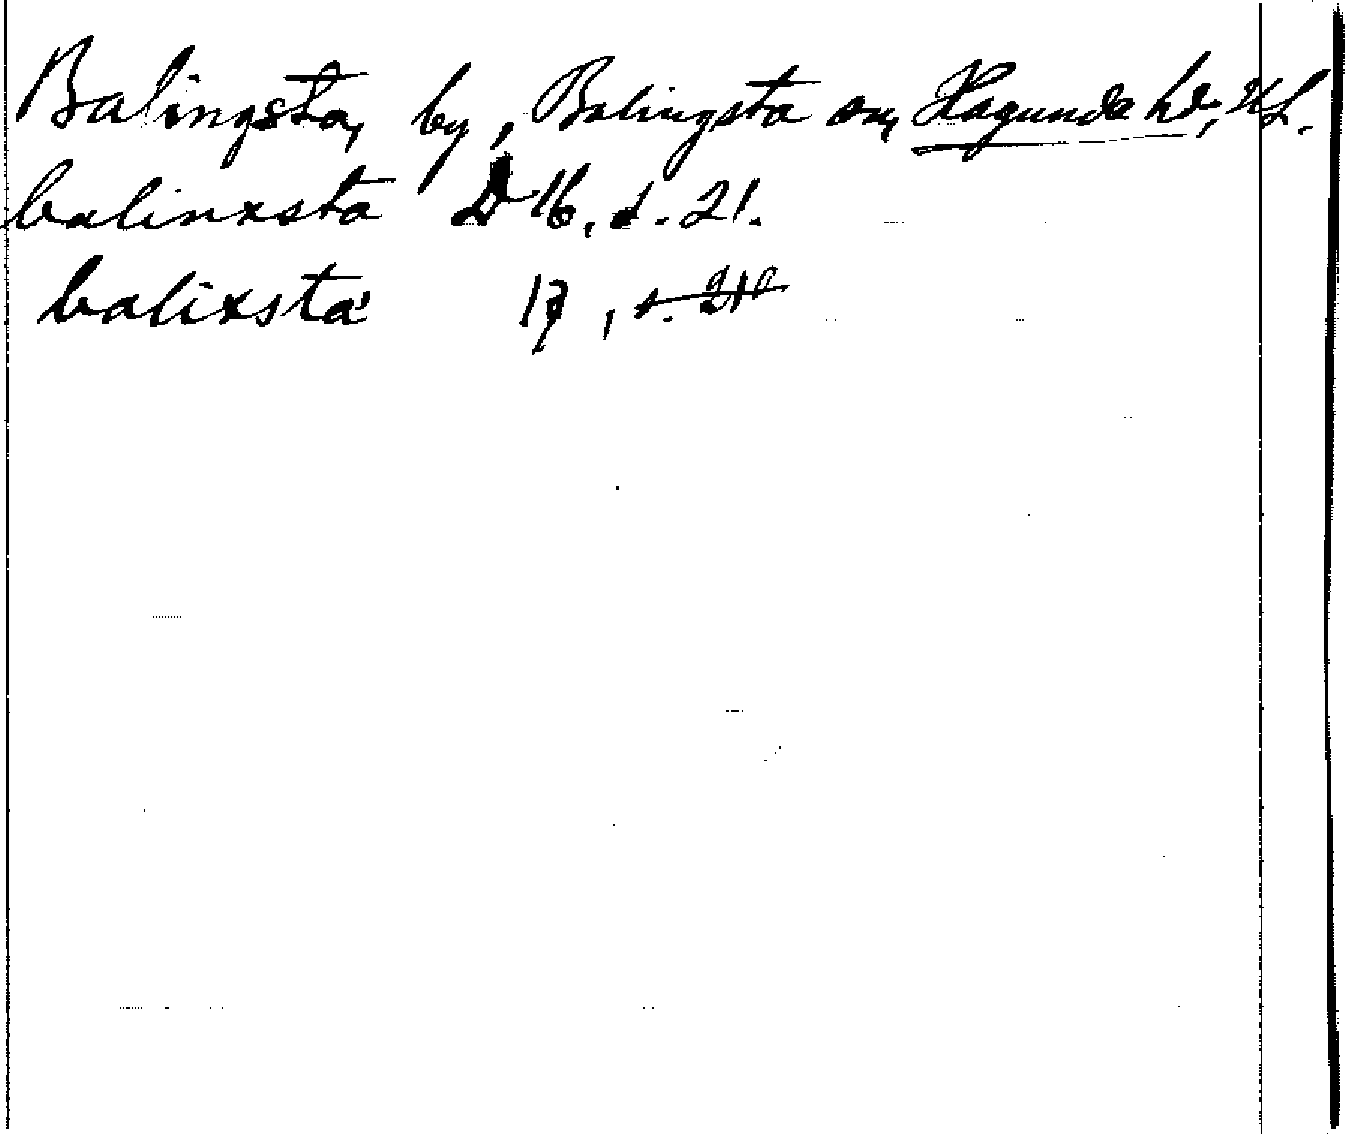 Balingsta, by, Balingsta sn, Hagunda hd, UL.
balinxsta D 16, s. 21.
balixsta 17,